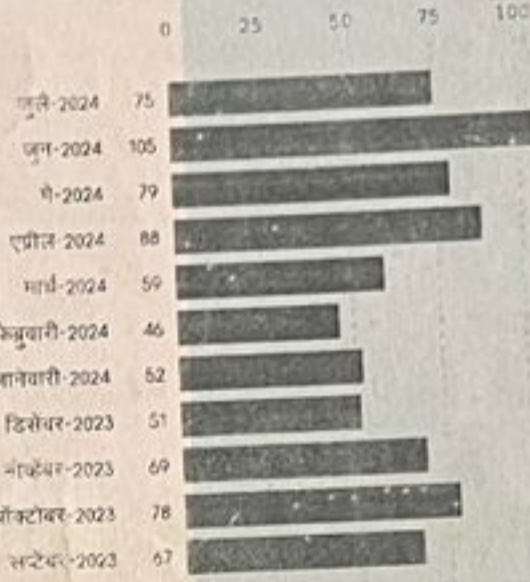 0 25 50 75 100
जुलै-2024 75
जून-2024 105
मे-2024 79
एप्रील-2024 88
मार्च-2024 59
फेब्रुवारी-2024 46
जानेवारी-2024 52
डिसेंबर-2023 51
नोव्हेंबर-2023 69
ऑक्टोबर-2023 78
सप्टेंबर-2023 67